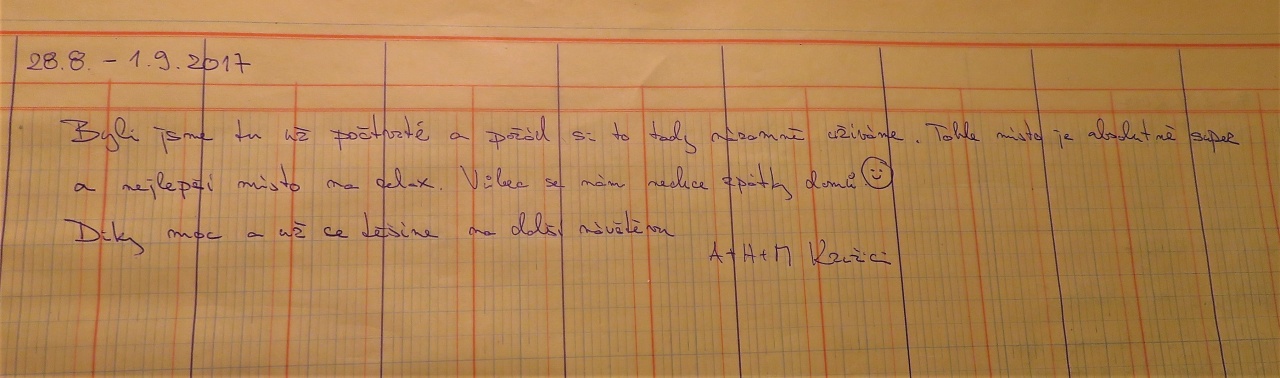 28.8. - 1.9.2017
Byli jsme tu už počtvrté a pořád si to tady náramně užíváme. Tohle místo je absolutně super
a nejlepší místo na relax. Vůbec se nám nechce zpátky domů ☺
Díky moc a už se těšíme na další návštěvu
A+H+M